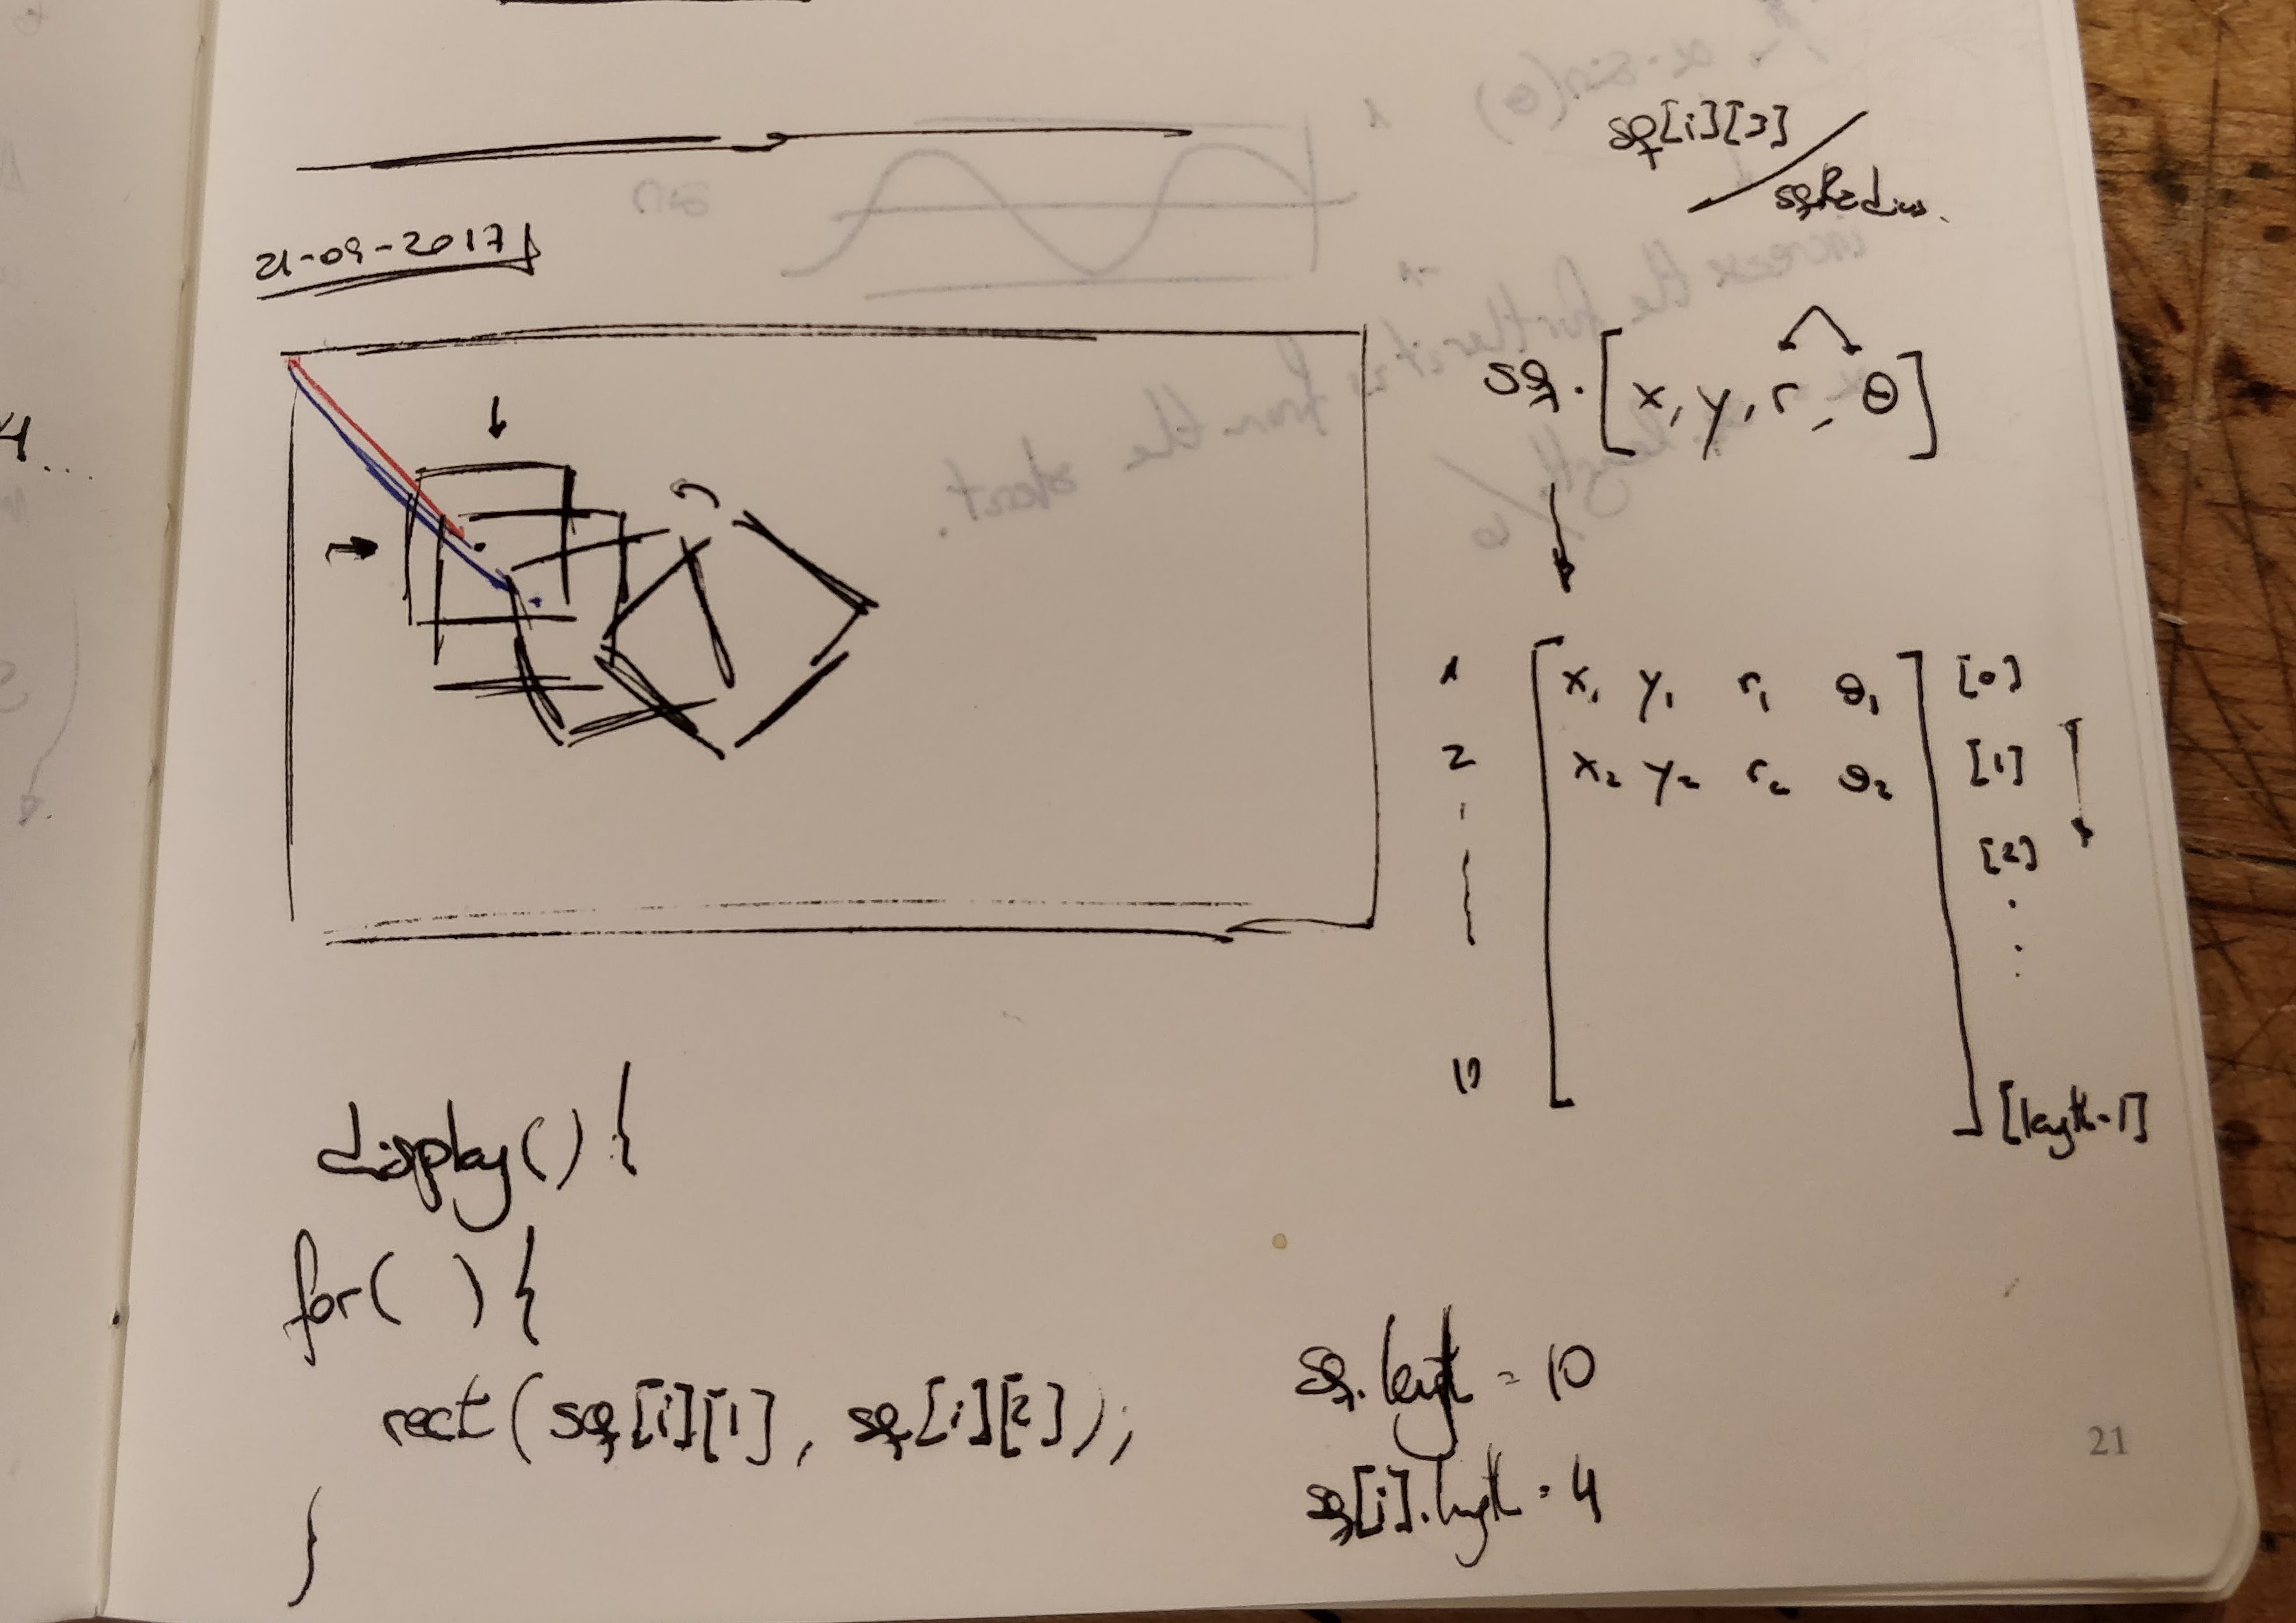 sq[i][3]
sqRadius.
21-09-2017
sq. [x, y, r, θ]
1 x₁ y₁ r₁ θ₁ [0]
2 x₂ y₂ r₂ θ₂ [1]
[2]
10 [length-1]
display() {
for( ) {
rect(sq[i][1], sq[i][2]);
}
sq.length = 10
sq[i].length = 4
21